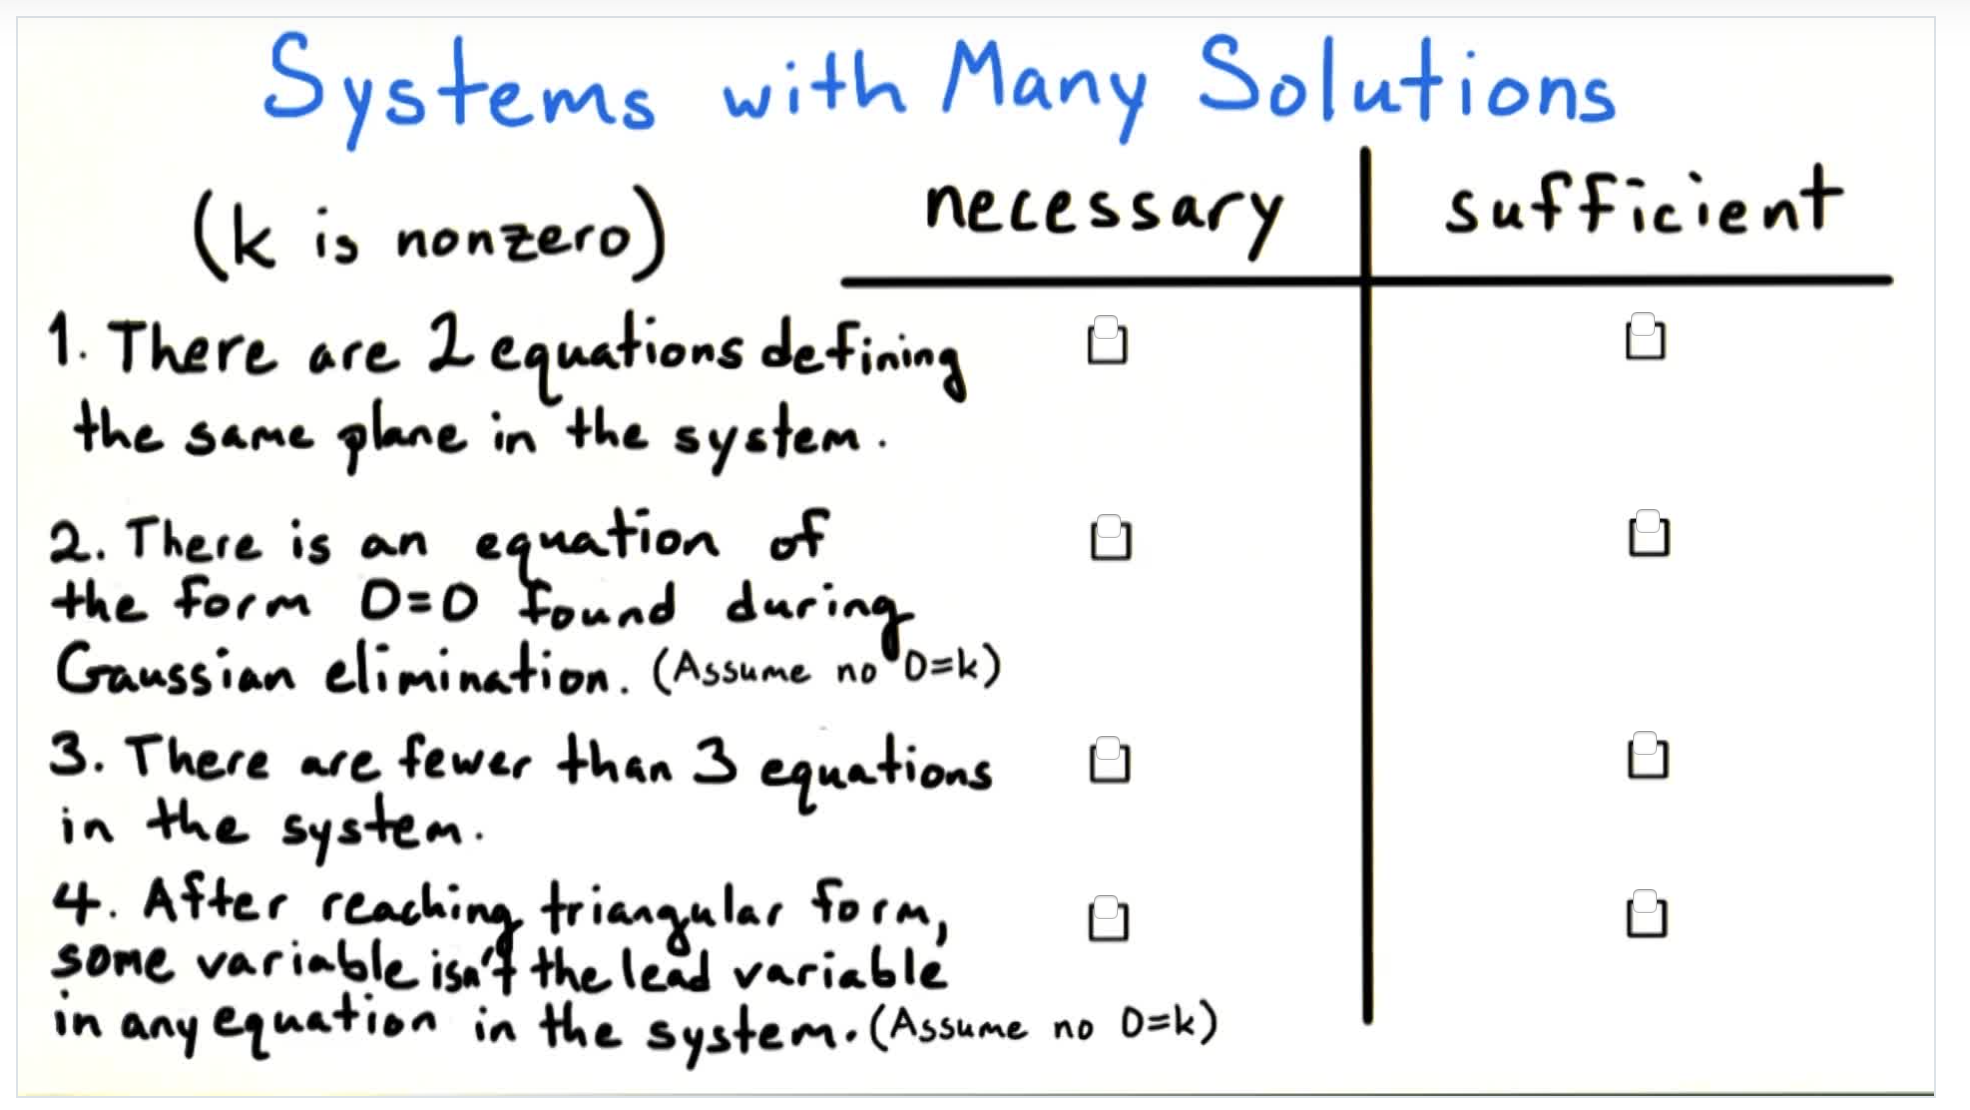 Systems with Many Solutions
(k is nonzero)
necessary
sufficient
1. There are 2 equations defining
the same plane in the system.
2. There is an equation of
the form 0=0 found during
Gaussian elimination. (Assume no 0=k)
3. There are fewer than 3 equations
in the system.
4. After reaching triangular form,
some variable isn't the lead variable
in any equation in the system. (Assume no 0=k)